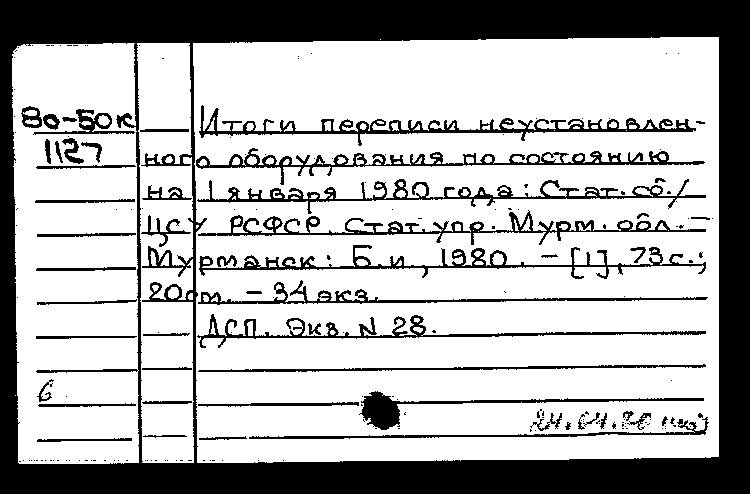 80-50к Итоги переписи неустановлен-
1127 ного оборудования по состоянию
на 1 января 1980 года: Стат. сб./
ЦСУ РСФСР. Стат. упр. Мурм. обл. –
Мурманск: Б.и., 1980. – [1], 73 с.;
20 см. – 34 экз.
ДСП. Экз. N 28.
6
24.04.80